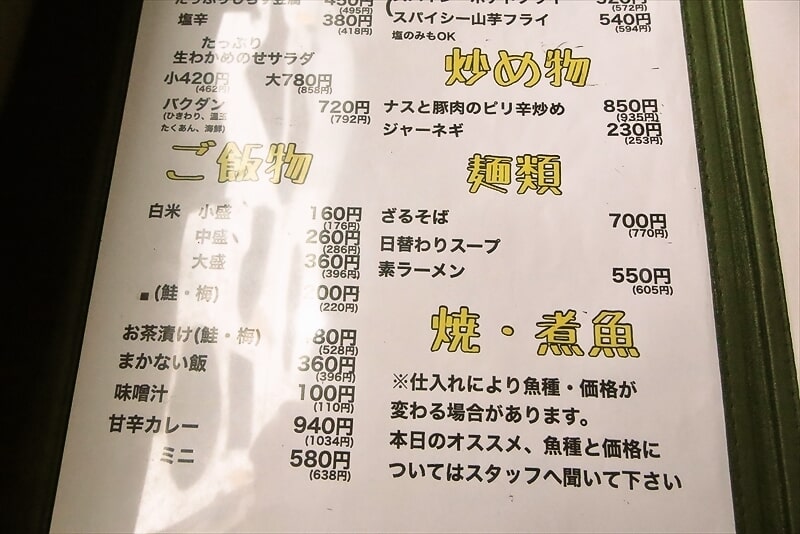 450円
(495円)
塩辛 380円
(418円)
たっぷり
生わかめのせサラダ
小420円 大780円
(462円) (858円)
バクダン 720円
(ひきわり、温玉 (792円)
たくあん、海鮮)
ご飯物
白米 小盛 160円
(176円)
中盛 260円
(286円)
大盛 360円
(396円)
(鮭・梅) 200円
(220円)
お茶漬け(鮭・梅) 80円
(528円)
まかない飯 360円
(396円)
味噌汁 100円
(110円)
甘辛カレー 940円
(1034円)
ミニ 580円
(638円)
520円
(572円)
スパイシー山芋フライ 540円
塩のみもOK (594円)
炒め物
ナスと豚肉のピリ辛炒め 850円
(935円)
ジャーネギ 230円
(253円)
麺類
ざるそば 700円
(770円)
日替わりスープ
素ラーメン 550円
(605円)
焼・煮魚
※仕入れにより魚種・価格が
変わる場合があります。
本日のオススメ、魚種と価格に
ついてはスタッフへ聞いて下さい